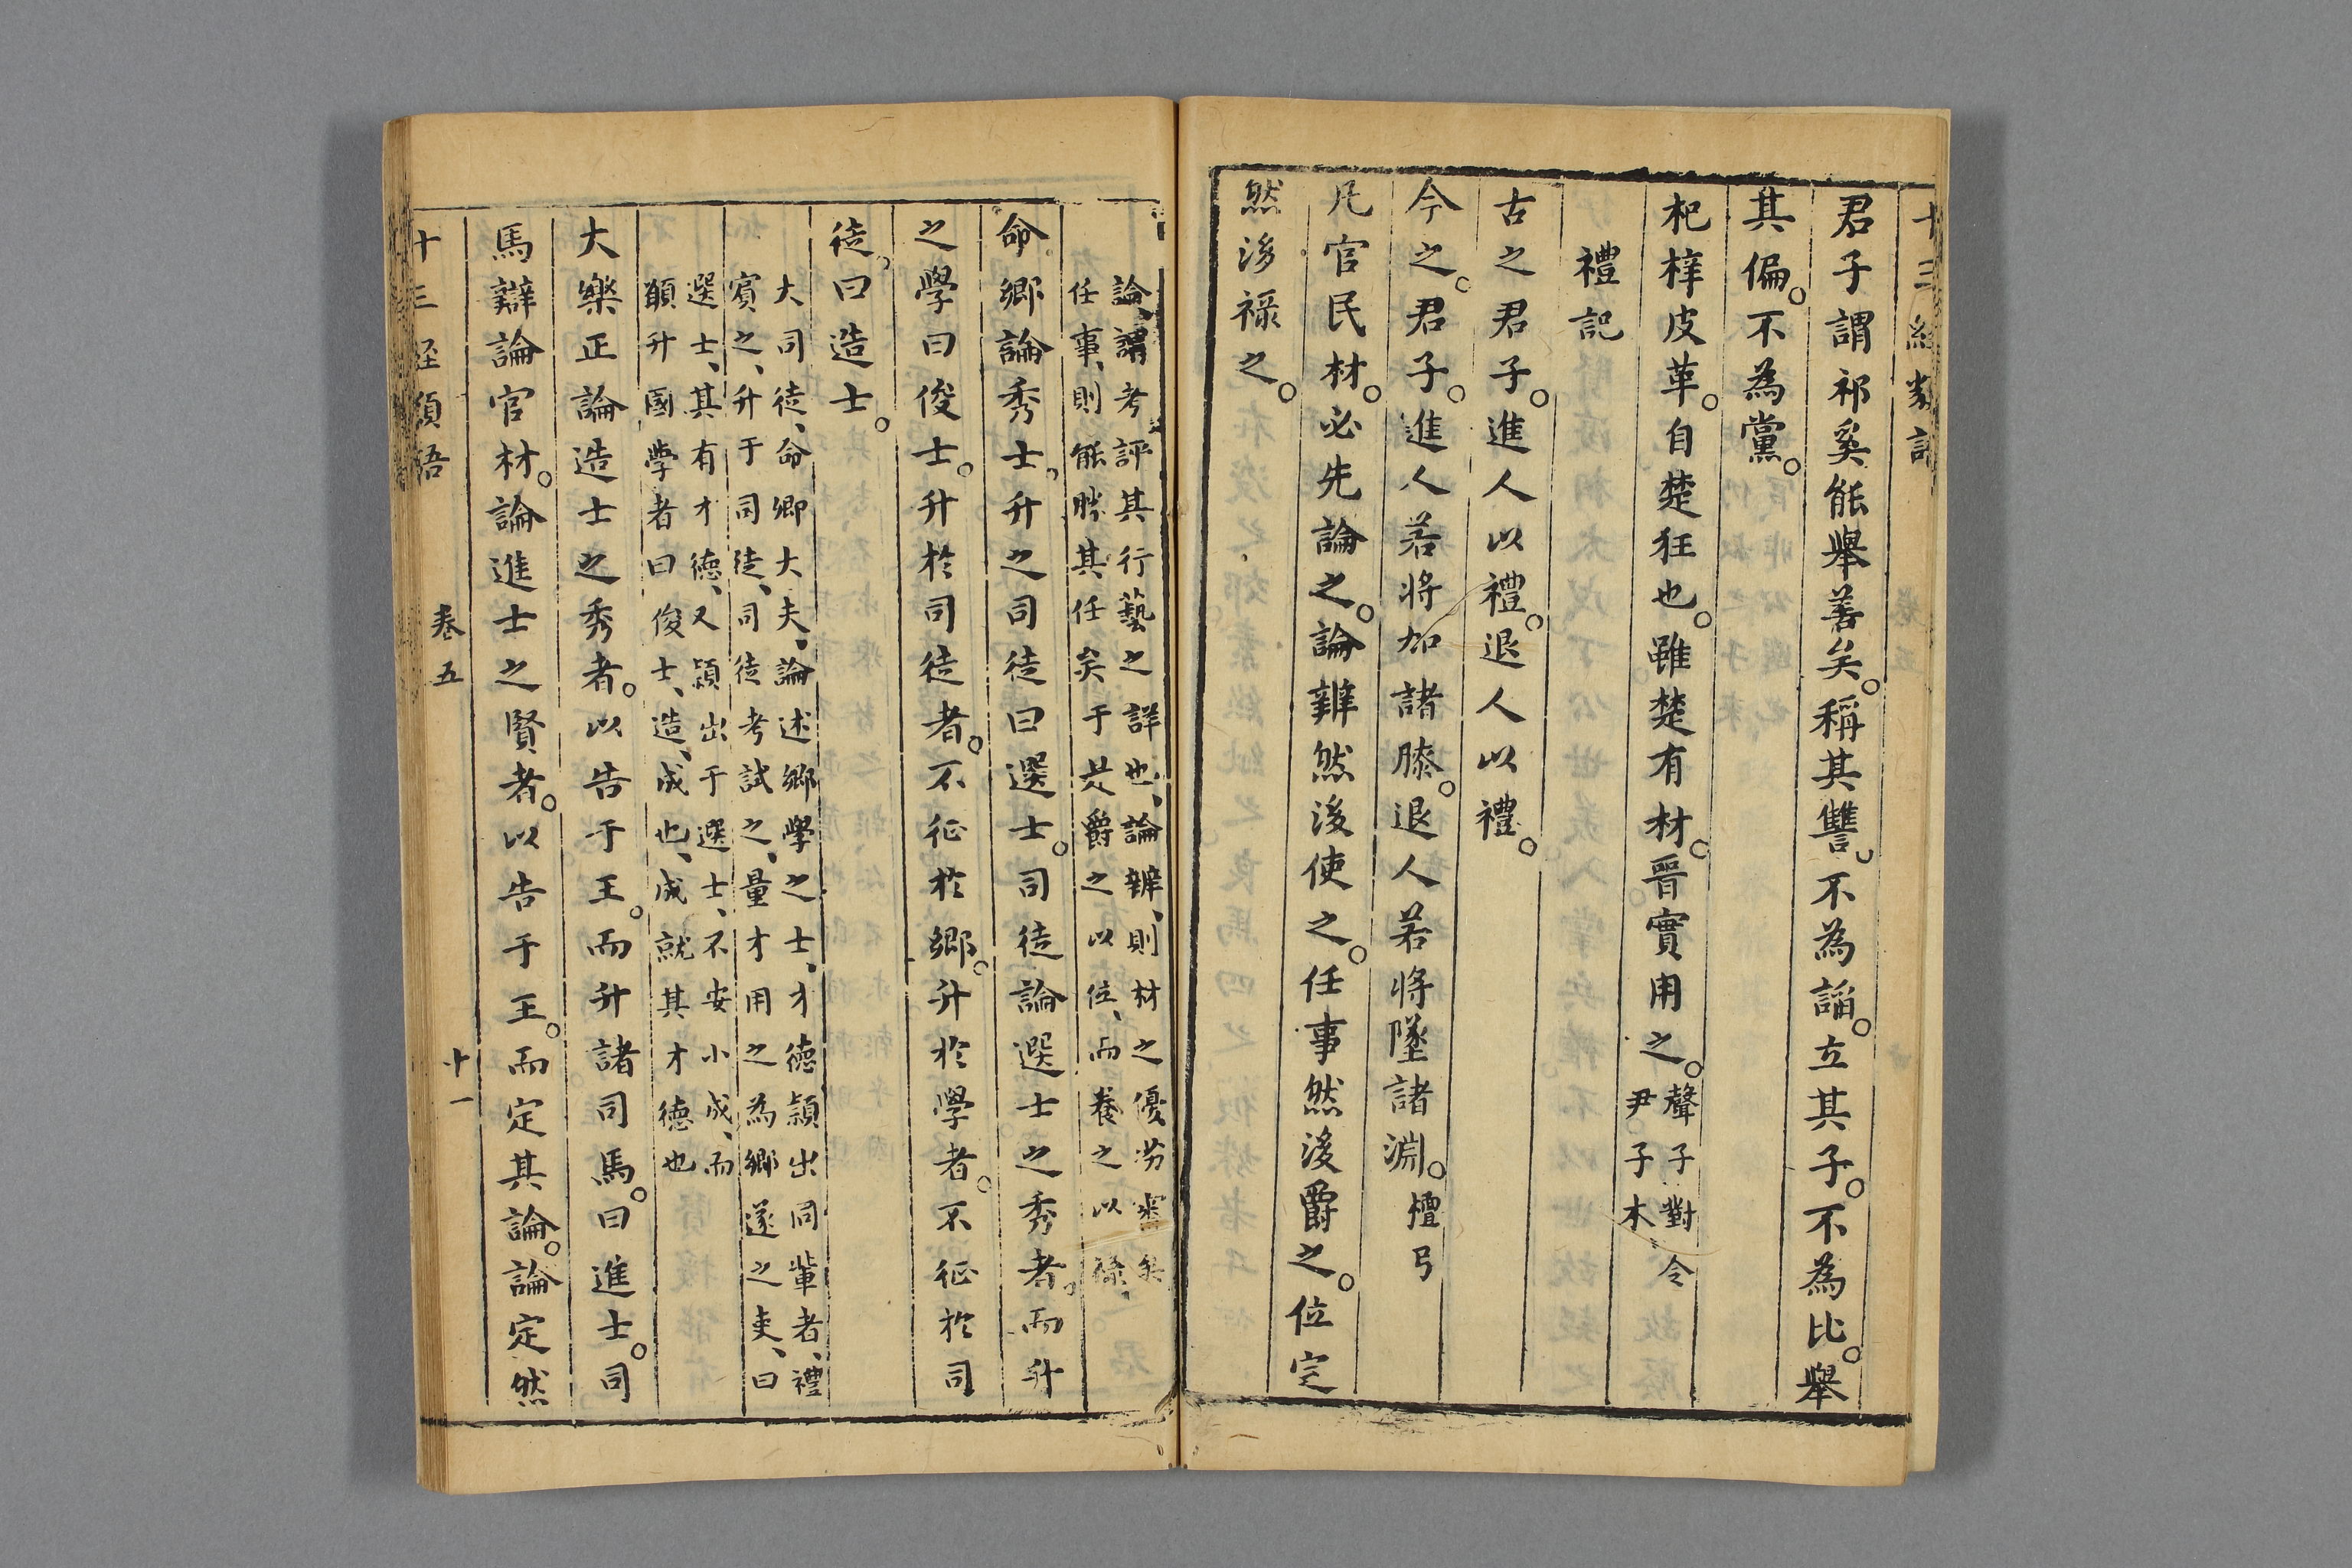 十三經類語
君子謂祁奚能舉善矣。稱其讐。不為謟。立其子。不為比。舉
其偏。不為黨。
杞梓皮革。自楚往也。雖楚有材。晉實用之。聲子對令尹子木
禮記
古之君子。進人以禮。退人以禮。
今之。君子。進人若將加諸膝。退人若將墜諸淵。檀弓
凡官民材。必先論之。論辨然後使之。任事然後爵之。位定
然後祿之。
論、謂考評其行藝之詳也、論辨、則材之優劣審矣
任事、則能勝其任矣于是爵之以位、而養之以祿、
命鄉論秀士。升之司徒曰選士。司徒論選士之秀者。而升
之學曰俊士。升於司徒者。不征於鄉。升於學者。不征於司
徒。曰造士。
大司徒、命卿大夫、論述鄉學之士、才德頴出同輩者、禮
賓之、升于司徒、司徒考試之、量才用之為鄉遂之吏、曰
選士、其有才德、又頴出于選士、不安小成、而
願升國學者曰俊士、造、成也、成就其才德也
大樂正論造士之秀者。以告于王。而升諸司馬。曰進士。司
馬辯論官材。論進士之賢者。以告于王。而定其論。論定然
十三經類語 卷五 十一